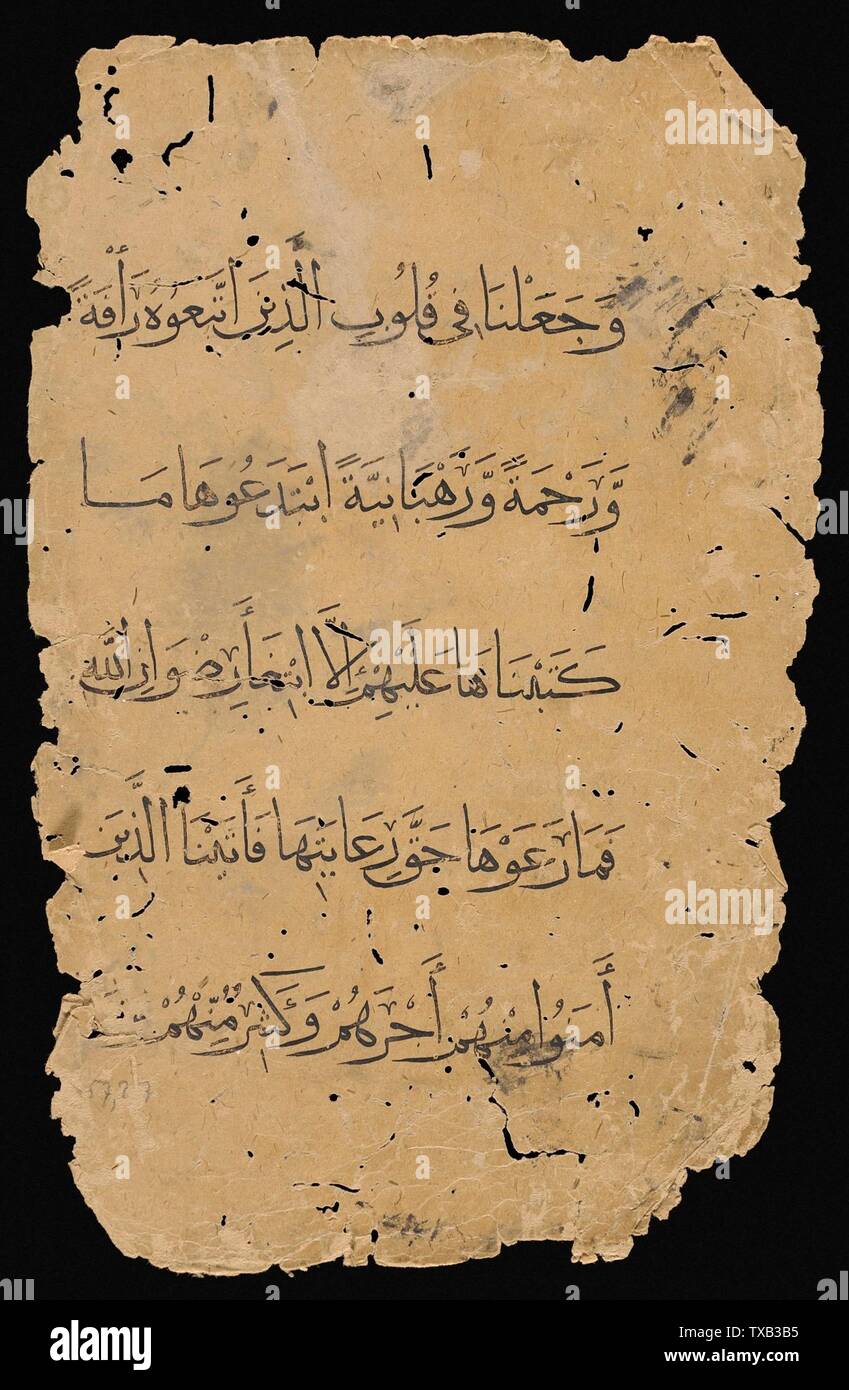 وَجَعَلْنَا فِي قُلُوبِ الَّذِينَ اتَّبَعُوهُ رَأْفَةً
وَّرَحْمَةً وَّرَهْبَانِيَّةً ابْتَدَعُوهَا مَا
كَتَبْنَاهَا عَلَيْهِمْ إِلَّا ابْتِغَأَ رِضْوَانِ اللَّهِ
فَمَا رَعَوْهَا حَقَّ رِعَايَتِهَا فَأَتَيْنَا الَّذِينَ
أَمَنُوا مِنْهُمْ أَجْرَهُمْ وَكَثِيرٌ مِّنْهُمْ
57,27
alamy
Image ID: TXB3B5
www.alamy.com